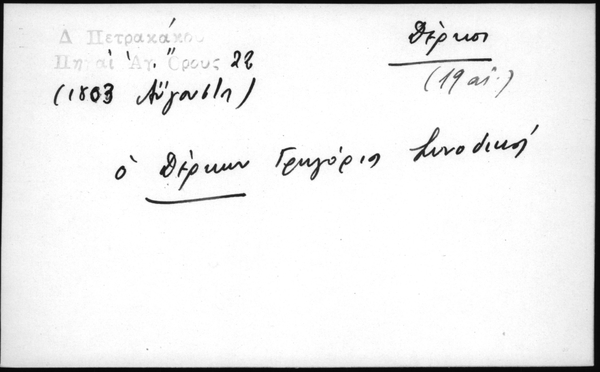 Δ Πετρακάκου
Πηγαὶ Ἁγ. Ὄρους 22
(1803 Αὔγουστη)
Δέρκοι
(19 αἰ.)
ὁ Δέρκων Γρηγόριος Συνοδικός